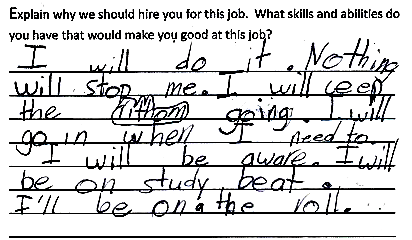 Explain why we should hire you for this job. What skills and abilities do
you have that would make you good at this job?
I will do it. Nothing
will stop me. I will ceep
the rithom going. I will
go in when I need to.
I will be aware. I will
be on study beat.
I'll be on a the roll.